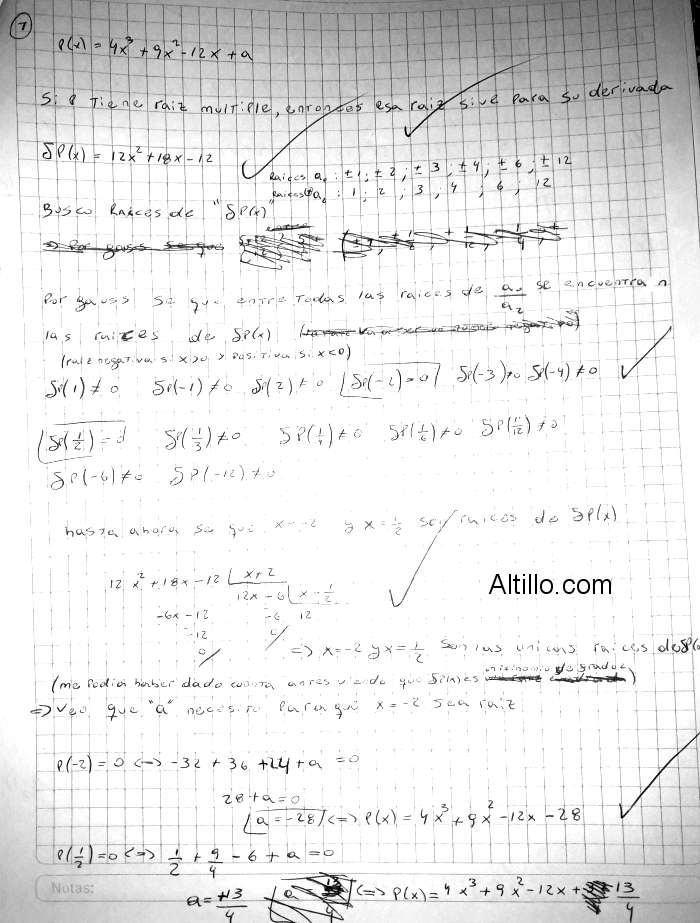 1
P(x) = 4x³ + 9x² - 12x + a
Si P Tiene raiz multiple, entonces esa raiz sive para su derivada
δP(x) = 12x² + 18x - 12
Raices a₀ : ±1 ; ± 2 ; ± 3 ; ± 4 ; ± 6 ; ± 12
: 1 ; 2 ; 3 ; 4 ; 6 ; 12
Busco Raices de "δP(x)"
Por gauss se que
Por gauss se que entre Todas las raices de a₀/a₂ se encuentran
las raices de δP(x)
(raiz negativa si x>0 y positiva si x<0)
δP(1) ≠ 0 δP(-1) ≠ 0 δP(2) ≠ 0 δP(-2) = 0 δP(-3) ≠ 0 δP(-4) ≠ 0
δP(1/2) = 0 δP(1/3) ≠ 0 δP(1/4) ≠ 0 δP(1/6) ≠ 0 δP(1/12) ≠ 0
δP(-6) ≠ 0 δP(-12) ≠ 0
hasta ahora se que x = -2 y x = 1/2 son raices de δP(x)
12x² + 18x - 12 | x + 2
12x - 6 | x - 1/2
-6x - 12 -6 12
-12 0
0
Altillo.com
=> x = -2 y x = 1/2 son las unicas raices de δP(
(me Podia haber dado cuenta antes viendo que δP(x) es de grado 2)
=> Veo que "a" necesito para que x = -2 sea raiz
P(-2) = 0 <=> -32 + 36 + 24 + a = 0
28 + a = 0
a = -28 <=> P(x) = 4x³ + 9x² - 12x - 28
P(1/2) = 0 <=> 1/2 + 9/4 - 6 + a = 0
a = +13/4 <=> P(x) = 4x³ + 9x² - 12x + 13/4
Notas: